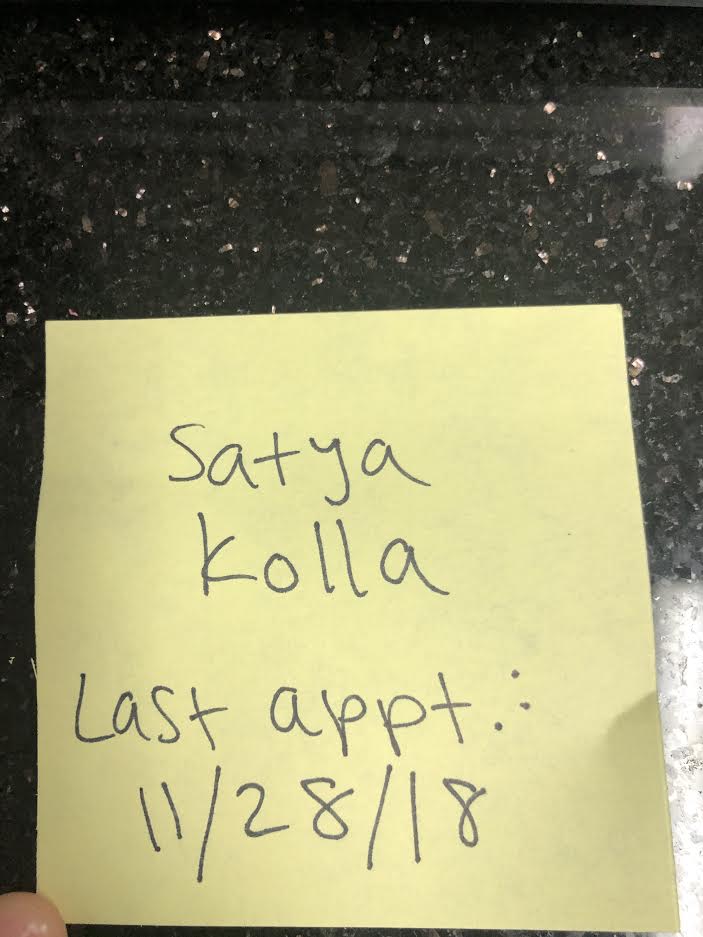 Satya
Kolla
Last appt.:
11/28/18